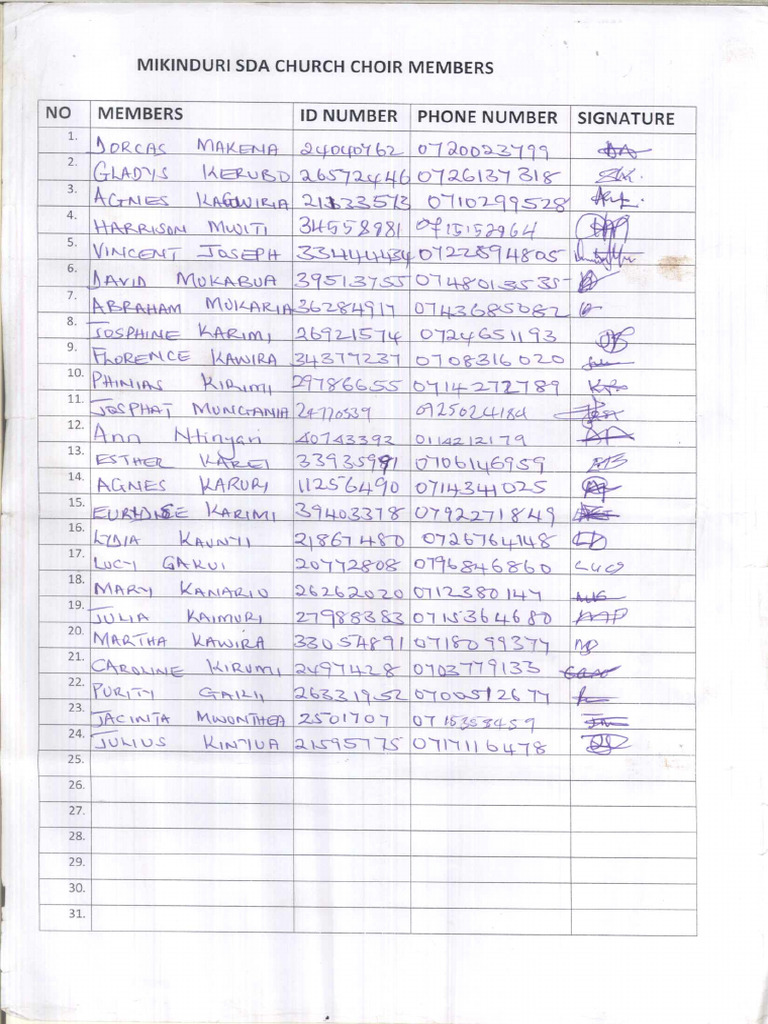 MIKINDURI SDA CHURCH CHOIR MEMBERS
NO MEMBERS ID NUMBER PHONE NUMBER SIGNATURE
1. DORCAS MAKENA 24040762 0720023799
2. GLADYS KERUBO 26572446 0726137318
3. AGNES KAGWIRIA 21333573 0710299528
4. HARRISON MWITI 34558981 0715152964
5. VINCENT JOSEPH 33444434 0722594805
6. DAVID MUKABUA 39513755 0748013535
7. ABRAHAM MUKARIA 36284917 0743685082
8. JOSPHINE KARIMI 26921574 0724651193
9. FLORENCE KAWIRA 34377237 0708316020
10. PHINIAS KIRIMI 29786655 0714272789
11. JOSPHAT MUNGANIA 24770539 0725024184
12. Ann Ntinyari 40743392 0114212179
13. ESTHER KAREI 33935991 0706146959
14. AGNES KARURI 11256490 0714341025
15. EURIDISE KARIMI 39403378 0792271849
16. LYDIA KAUNYI 21867480 0726764148
17. LUCY GAKUI 20772808 0796846860
18. MARY KANARIO 26262020 0712380147
19. JULIA KAIMURI 27988383 0715364680
20. MARTHA KAWIRA 33054891 0718099377
21. CAROLINE KIRUMI 24971428 0703779133
22. PURITY 26331952 0700512677
23. JACINTA MWONTHEA 2501707 0715353459
24. JULIUS KINTUA 21595775 0717116478
25.
26.
27.
28.
29.
30.
31.